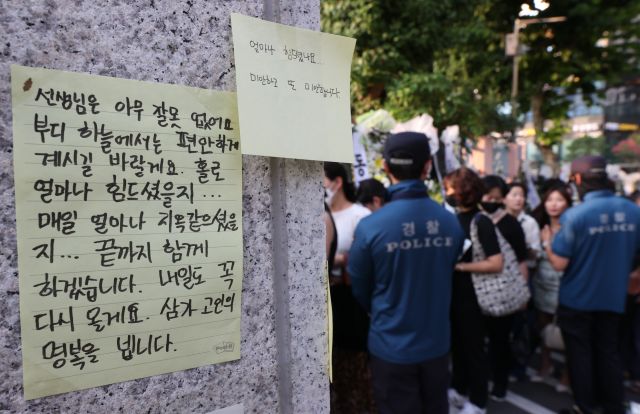 선생님은 아무 잘못 없어요
부디 하늘에서는 편안하게
계시길 바랄게요. 홀로
얼마나 힘드셨을지...
매일 얼마나 지옥같으셨을
지... 끝까지 함께
하겠습니다. 내일도 꼭
다시 올게요. 삼가 고인의
명복을 빕니다.
얼마나 힘드셨나요...
미안하고 또 미안합니다.
경찰
POLICE
경찰
POLICE